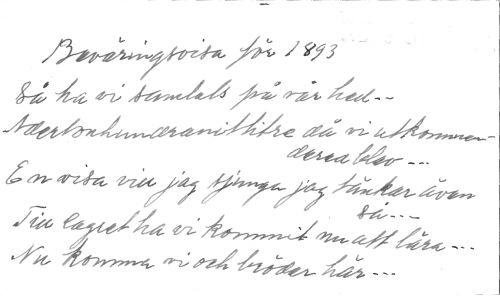 Beväringsvisa för 1893
Så ha vi samlats på vår hed --
Adertonhundranittitre då vi utkommen-
derea blev ---
En visa vill jag sjunga jag tänkar även
så ---
Till lägret ha vi kommit nu att lära ---
Nu komma vi och bröder här ---